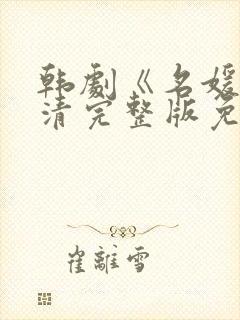 韩劇《名媛
清完整版免
崔離雪